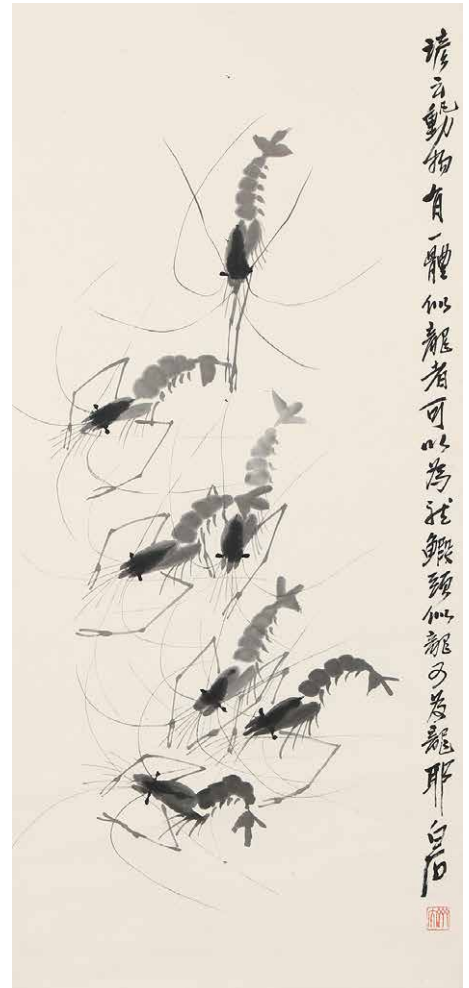 諺云動物有一體似龍者可以為龍鰕頭似龍可為龍耶白石